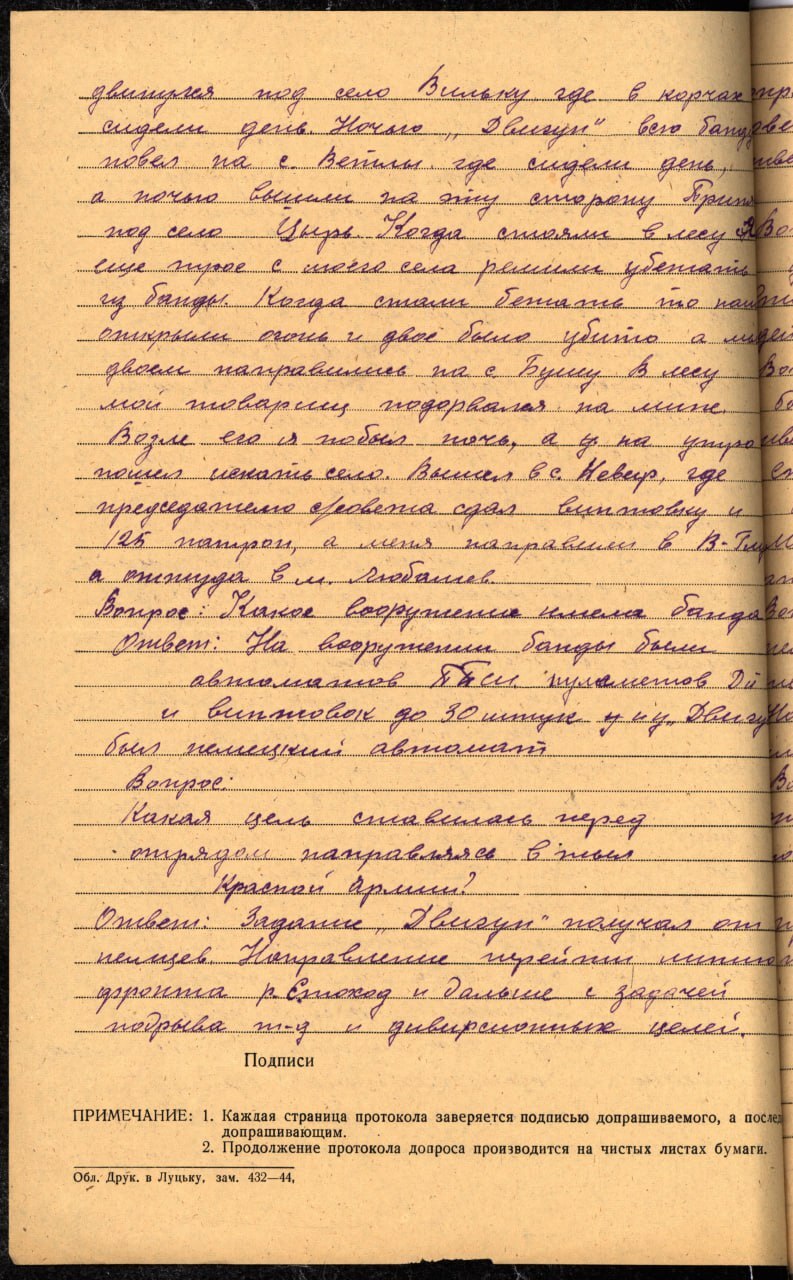 двинулся под село Вильку где в корчах
сидели день. Ночью „Двигун" всю банду
повел на с. Ветлы. где сидели день,
а ночью вышли на эту сторону Прип
под село Цырь. Когда стояли в лесу я
еще трое с моего села решили убежать
из банды. Когда стали бежать то
открыли огонь и двое было убито а мы
двоем направились на с. Бучу В лесу
мой товарищ подорвался на мине.
Возле его я побыл ночь, а на утро
пошел искать село. Вышел в с. Невер, где
председателю с/совета сдал винтовку и
125 патрон, а меня направили в В-Глу
а оттуда в м. Любашев.
Вопрос: Какое вооружение имела банда
Ответ: На вооружении банды были
автоматов ППСМ пулеметов
и винтовок до 30 штук у „Двигу
был немецкий автомат
Вопрос:
Какая цель ставилась перед
отрядом направляясь в тыл
Красной Армии?
Ответ: Задание „Двигун" получал от
немцев. Направление перейти линию
фронта р. Стоход и дальше с задачей
подрыва ж-д и дивирсионных целей.
Подписи
ПРИМЕЧАНИЕ: 1. Каждая страница протокола заверяется подписью допрашиваемого, а послед
допрашивающим.
2. Продолжение протокола допроса производится на чистых листах бумаги.
Обл. Друк. в Луцьку, зам. 432—44,